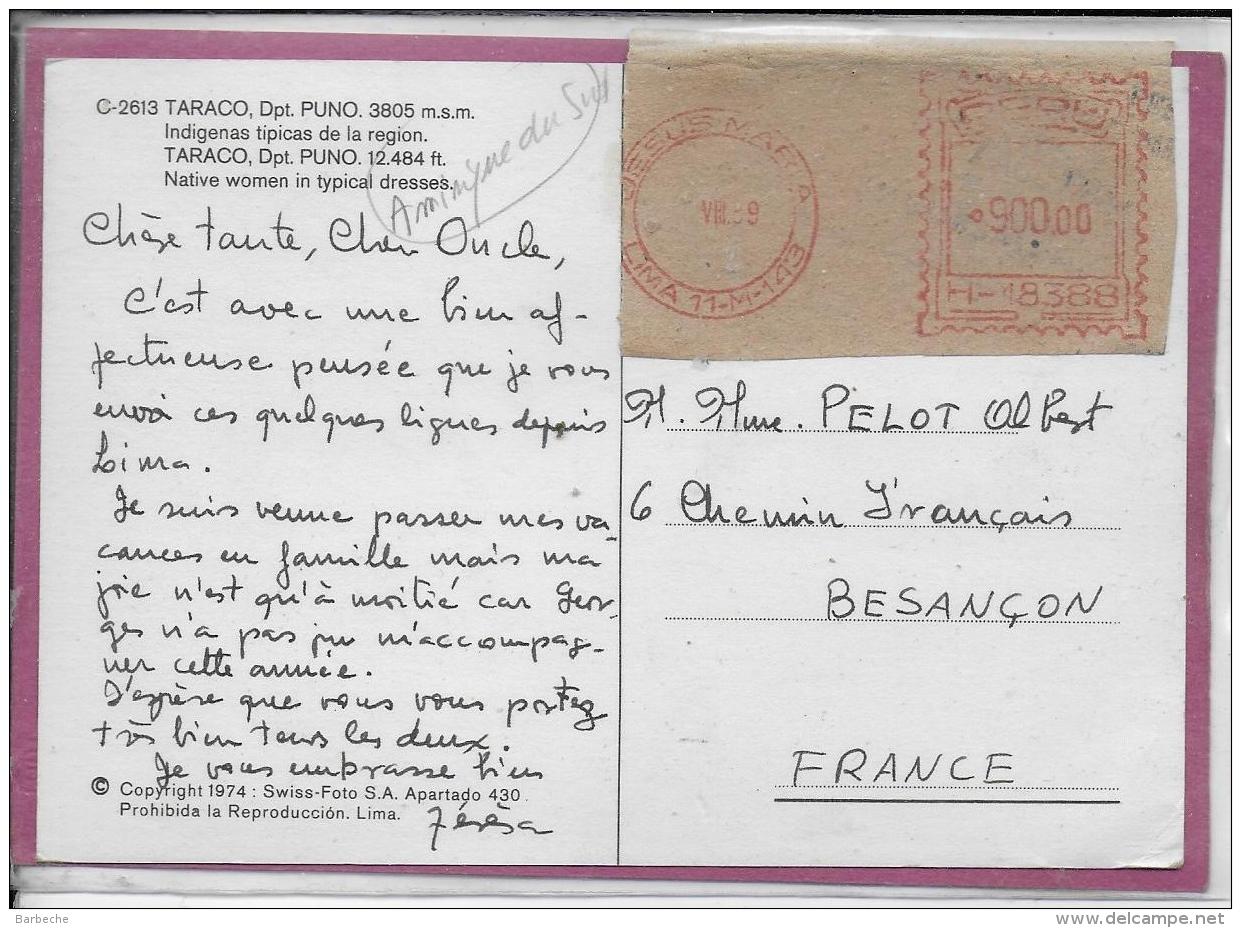 C-2613 TARACO, Dpt. PUNO. 3805 m.s.m.
Indigenas típicas de la region.
TARACO, Dpt. PUNO. 12.484 ft.
Native women in typical dresses.
du Sud
Chère tante, Cher Oncle,
C'est avec une bien af-
fectueuse pensée que je vous
envoi ces quelques lignes depuis
Lima.
Je suis venue passer mes va
cances en famille mais ma
joie n'est qu'à moitié car Geor-
ges n'a pas pu m'accompag-
ner cette année.
J'espère que vous vous portez
très bien tous les deux.
Je vous embrasse bien
Térèsa
© Copyright 1974 : Swiss-Foto S.A. Apartado 430.
Prohibida la Reproducción. Lima.
JESUS MARIA
VIII.89
LIMA 11-M-143
900.00
H-18388
M. Mme. PELOT Albert
6 Chemin Français
BESANÇON
FRANCE
Barbeche
www.delcampe.net